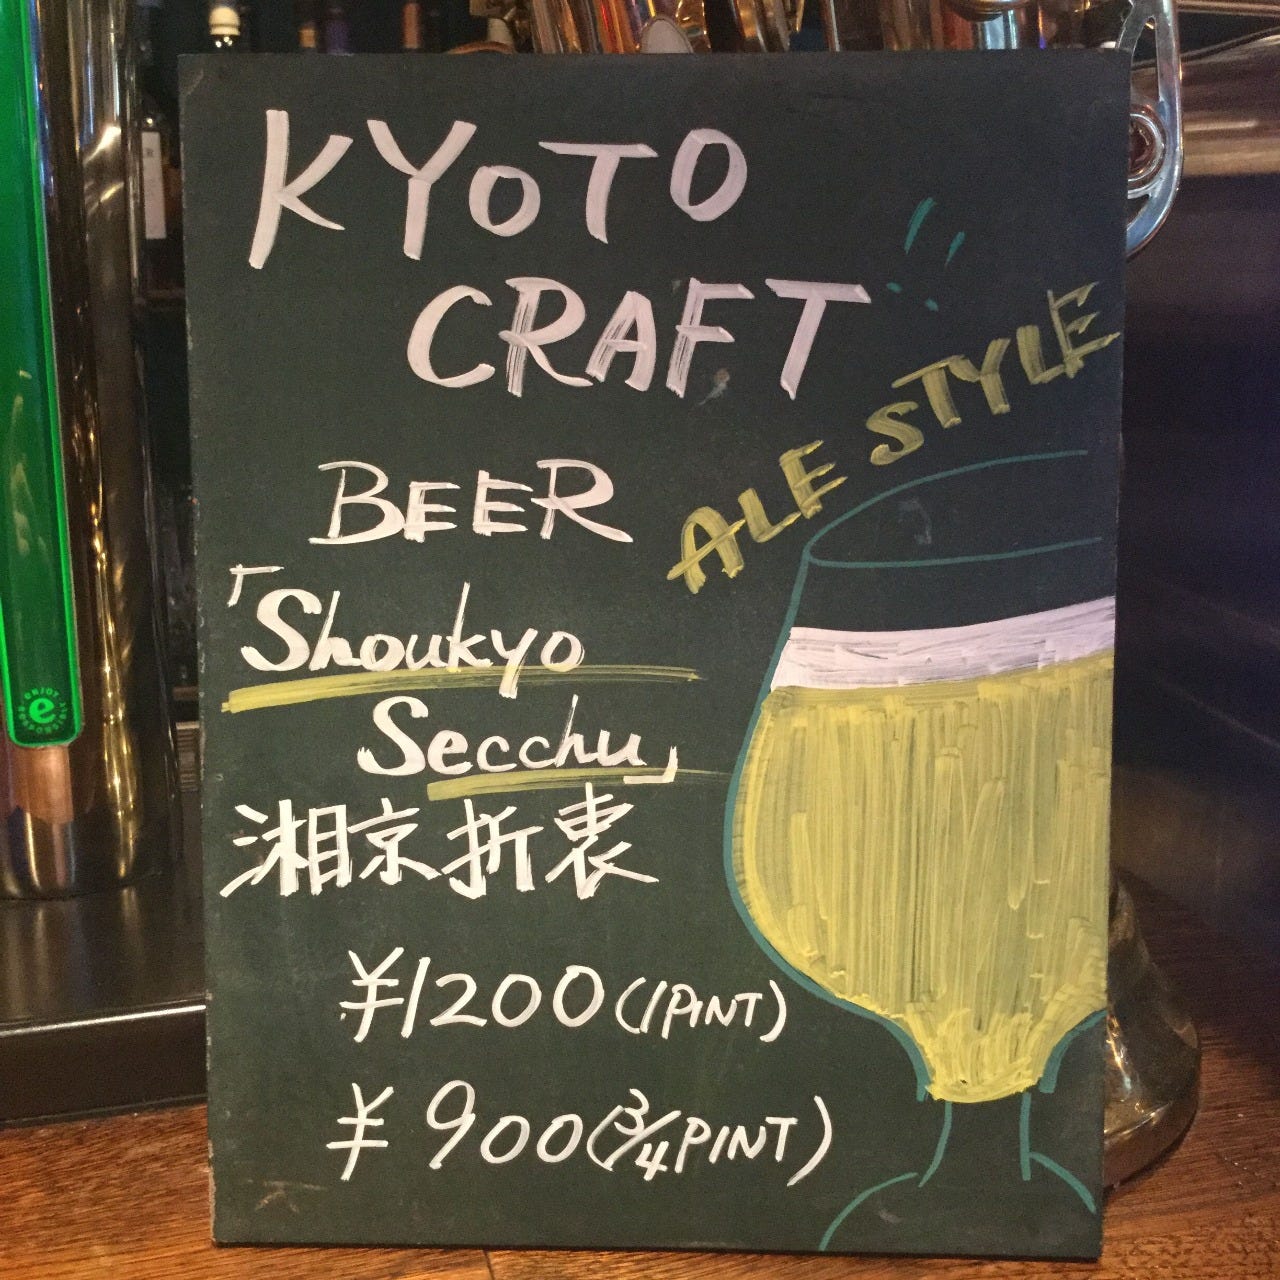 KYOTO
CRAFT
BEER
ALE STYLE
「Shoukyo
Secchu」
湘京折衷
¥1200(1PINT)
¥900(3/4PINT)
ENJOY
e
RESPONSIBLE